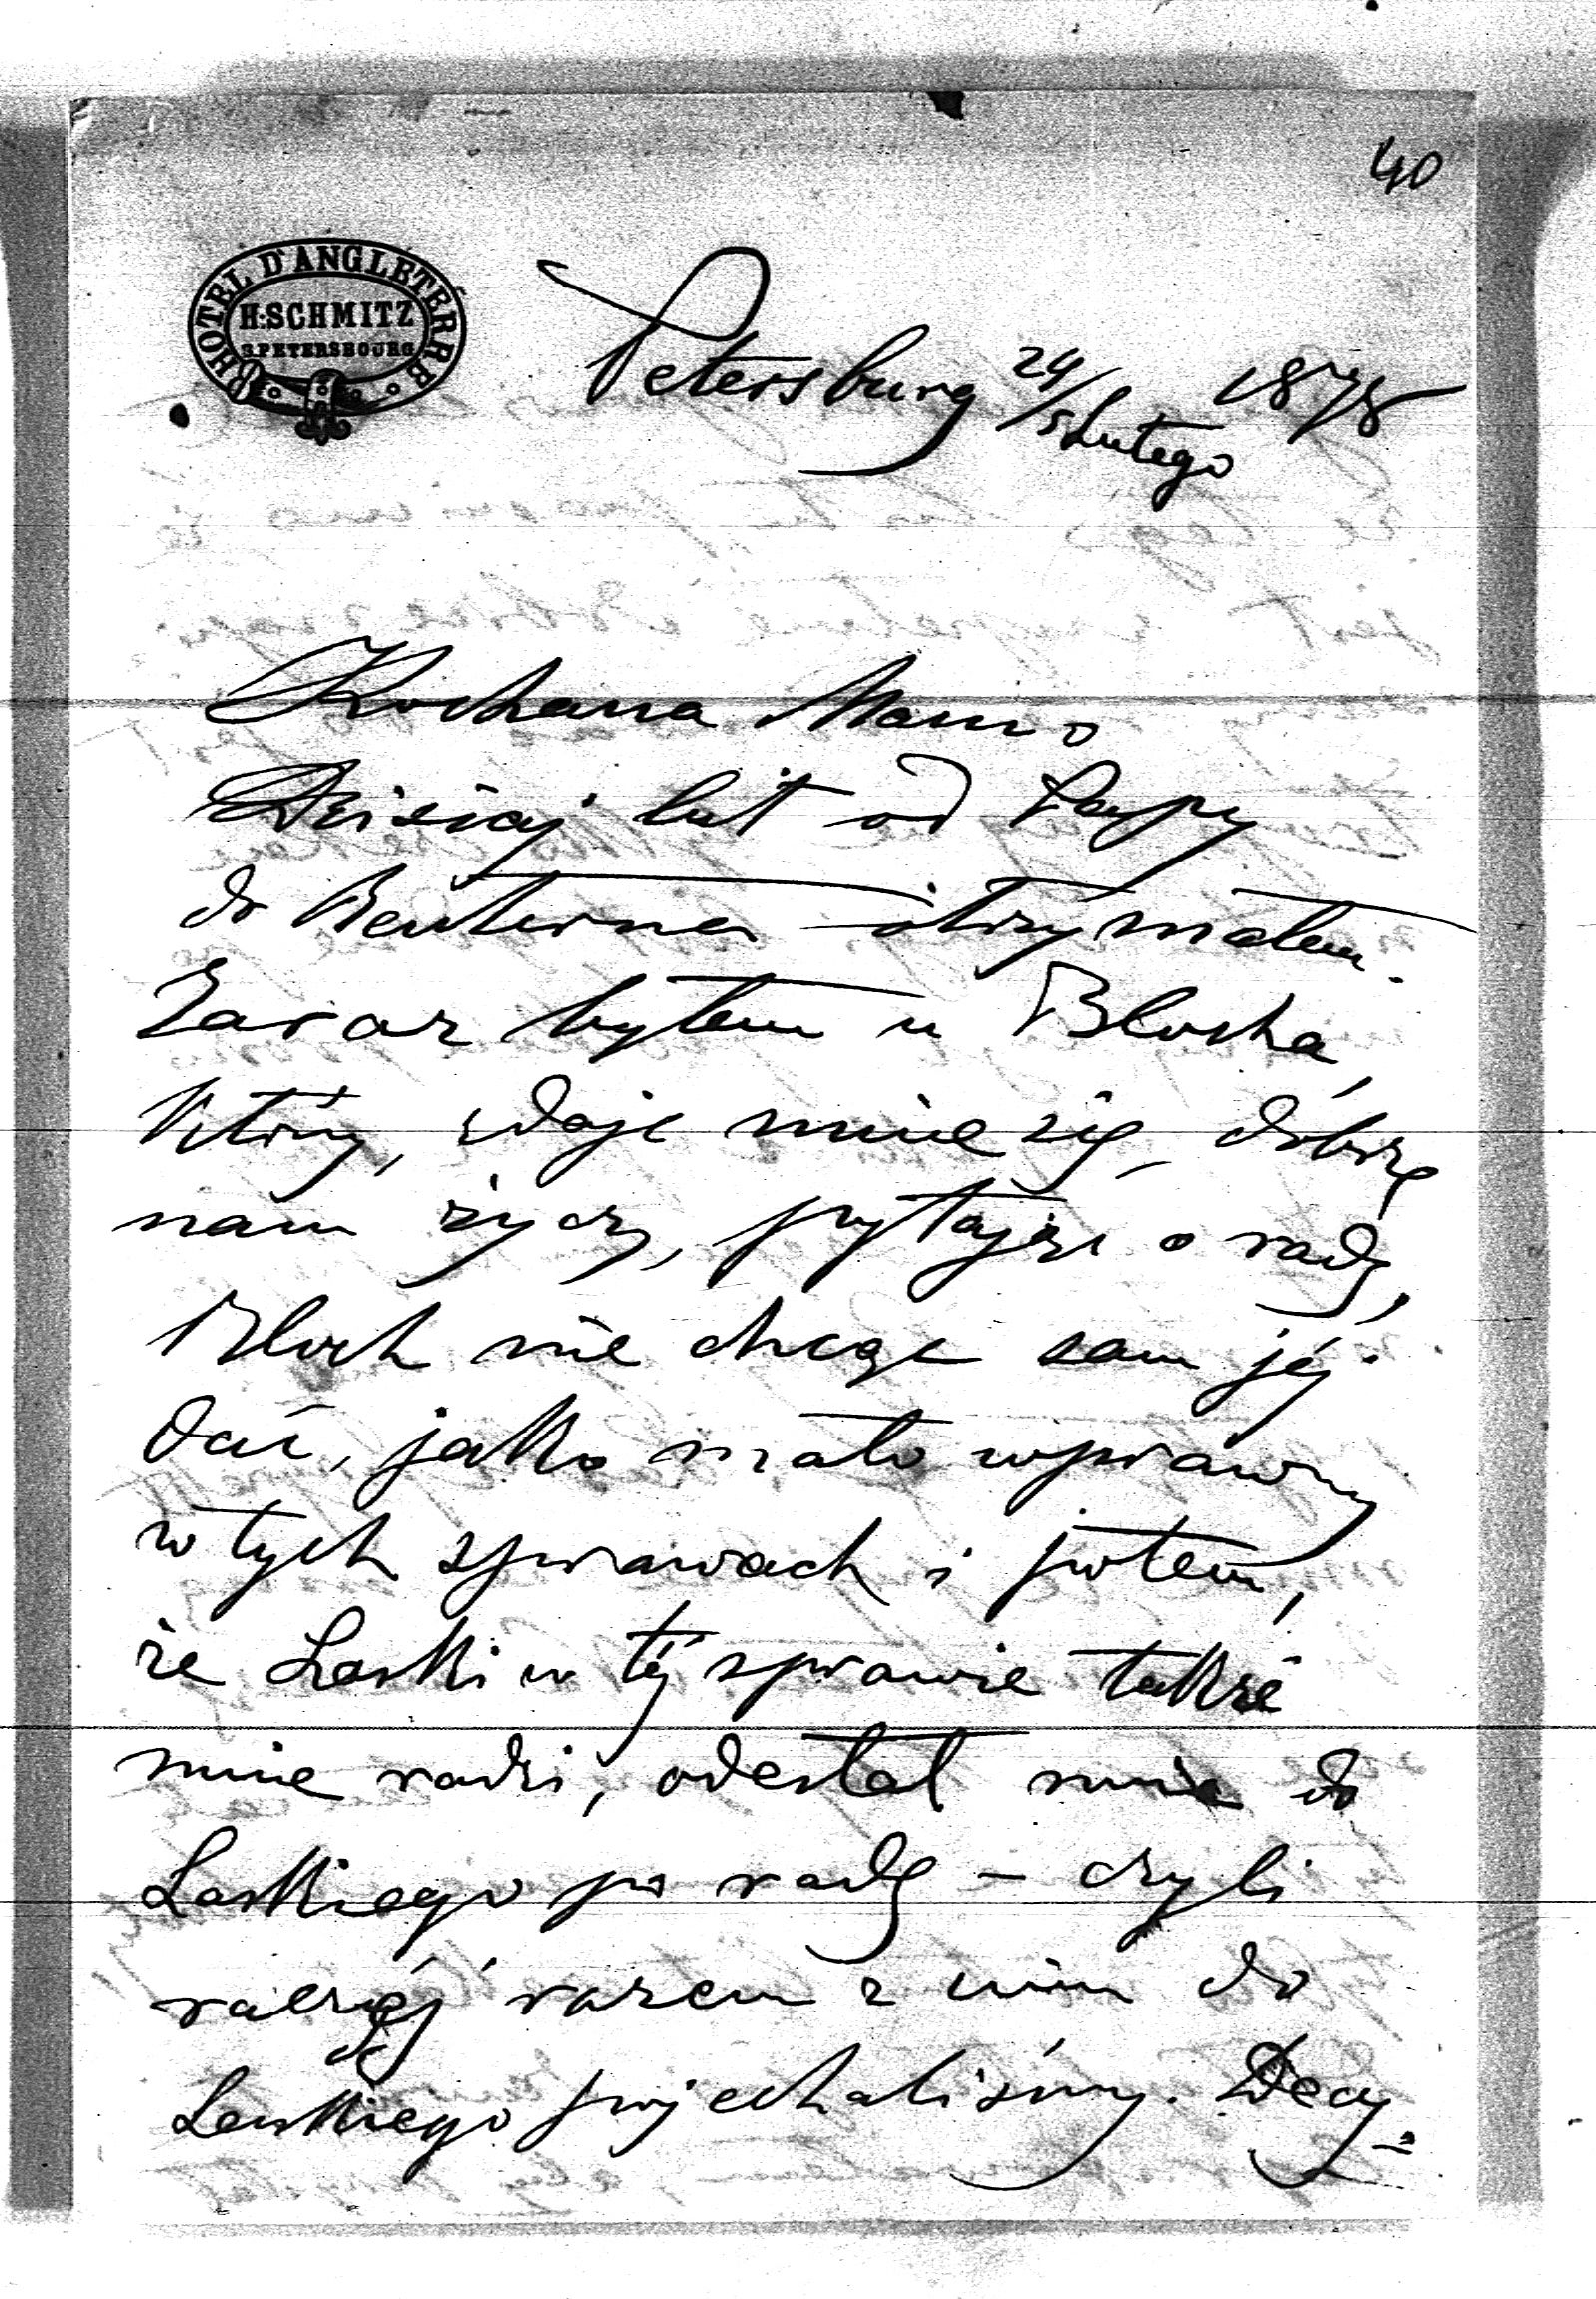 40
HOTEL D'ANGLETERRE
H. SCHMITZ
S. PETERSBOURG
Petersburg 24/5 Lutego 1878
Kochana Mamo
Dzisiaj list od Papy
do Reuterna otrzymałem.
Zaraz byłem u Blocha,
który, zdaje mnie się, dobrze
nam życzy, pytając o radę,
Bloch nie chcąc sam jéj
dać, jako mało wprawny
w tych sprawach i potem,
że Laski w téj sprawie także
mnie radzi, odesłał mnie do
Laskiego po radę – czyli
raczéj razem z nim do
Laskiego pojechaliśmy. Decy=